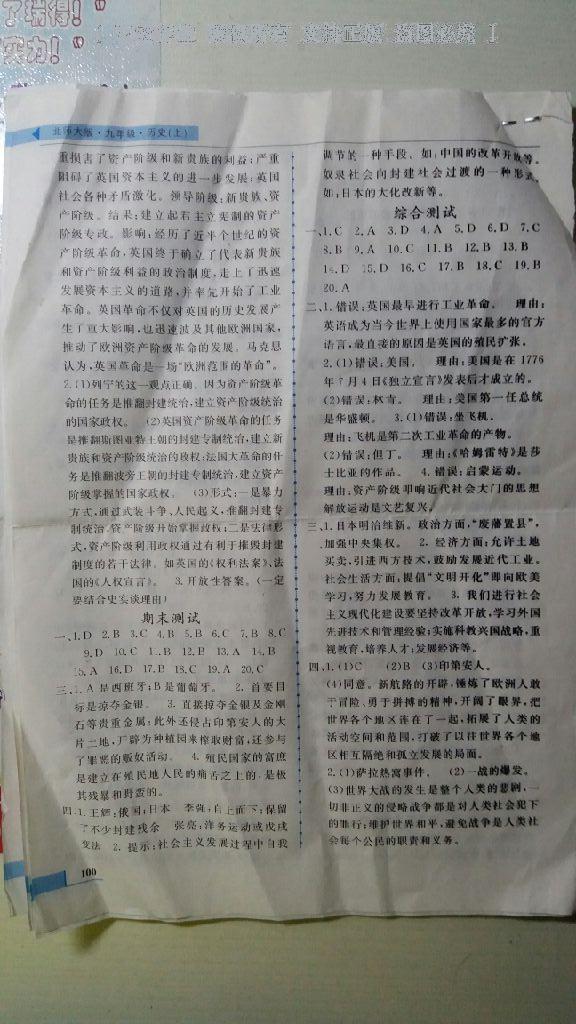 了瑞得！"
实力！"
北师大版·九年级·历史(上)
重损害了资产阶级和新贵族的利益；严重
阻碍了英国资本主义的进一步发展；英国
社会各种矛盾激化。领导阶级：新贵族、资
产阶级。结果：建立起君主立宪制的资产
阶级专政。影响：经历了近半个世纪的资
产阶级革命，英国终于确立了代表新贵族
和资产阶级利益的政治制度，走上了迅速
发展资本主义的道路，并率先开始了工业
革命。英国革命不仅对英国的历史发展产
生了重大影响，也迅速波及其他欧洲国家，
推动了欧洲资产阶级革命的发展。马克思
认为，英国革命是一场"欧洲范围的革命"。
2.(1)列宁的这一观点正确。因为资产阶级革
命的任务是推翻封建统治，建立资产阶级统治
的国家政权。 (2)英国资产阶级革命的任务
是推翻斯图亚特王朝的封建专制统治，建立新
贵族和资产阶级统治的政权；法国大革命的任
务是推翻波旁王朝的封建专制统治，建立资产
阶级掌握的国家政权。 (3)形式：一是暴力
方式，通过武装斗争、人民起义，推翻封建专
制统治，资产阶级开始掌握政权；二是法律形
式，资产阶级利用政权通过有利于摧毁封建
制度的若干法律。如英国的《权利法案》、法
国的《人权宣言》。 3.开放生答案。(一定
要结合史实谈理由)
期末测试
一、1.D 2.B 3.C 4.B 5.B 6.C 7.B 8.C
9.D 10.C 11.B 12.B 13.A 14.B
15.A 16.D 17.B 18.C 19.A 20.C
三、1.A是西班牙；B是葡萄牙。 2.首要目
标是掠夺金银。 3.直接掠夺金银及金刚
石等贵重金属；此外还侵占印第安人的大
片土地，开辟为种植园来榨取财富，还参与
了罪恶的贩奴活动。 4.殖民国家的富庶
是建立在殖民地人民的痛苦之上的，是极
其残暴和野蛮的。
四、1.王辉：俄国；日本 李强：自上而下；保留
了不少封建残余 张亮：洋务运动或戊戌
变法 2.提示：社会主义发展过程中自我
100
调节的一种手段。如：中国的改革开放等。
奴隶社会向封建社会过渡的一种形式。
如：日本的大化改新等。
综合测试
一、1.C 2.A 3.D 4.A 5.D 6.D 7.C
8.B 9.A 10.C 11.B 12.B 13.B
14.D 15.D 16.C 17.B 18.C 19.B
20.A
二、1.错误；英国最早进行工业革命。 理由：
英语成为当今世界上使用国家最多的官方
语言，最直接的原因是英国的殖民扩张。
2.(1)错误；美国。 理由：美国是在1776
年7月4日《独立宣言》发表后才成立的。
(2)错误；林肯。 理由：美国第一任总统
是华盛顿。 3.(1)错误；坐飞机。
理由：飞机是第二次工业革命的产物。
(2)错误；但丁。 理由：《哈姆雷特》是莎
士比亚的作品。 4.错误；启蒙运动。
理由：资产阶级叩响近代社会大门的思想
解放运动是文艺复兴。
三、1.日本明治维新。政治方面，"废藩置县"，
加强中央集权。 2.经济方面：允许土地
买卖，引进西方技术，鼓励发展近代工业。
社会生活方面：提倡"文明开化"即向欧美
学习，努力发展教育。 3.我们进行社会
主义现代化建设要坚持改革开放，学习外国
先进技术和管理经验；实施科教兴国战略，重
视教育，培养人才；发展经济等。
四、1.(1)C (2)B (3)印第安人。
(4)同意。新航路的开辟，锤炼了欧洲人敢
于冒险、勇于拼搏的精神，开阔了眼界，把
世界各个地区连在了一起，拓展了人类的
活动空间和范围，打破了以往世界各个地
区相互隔绝和孤立发展的局面。
2.(1)萨拉热窝事件。 (2)一战的爆发。
(3)世界大战的发生是整个人类的悲剧，一
切非正义的侵略战争都是对人类社会犯下
的罪行；维护世界和平，避免战争是人类社
会每个公民的职责和义务。